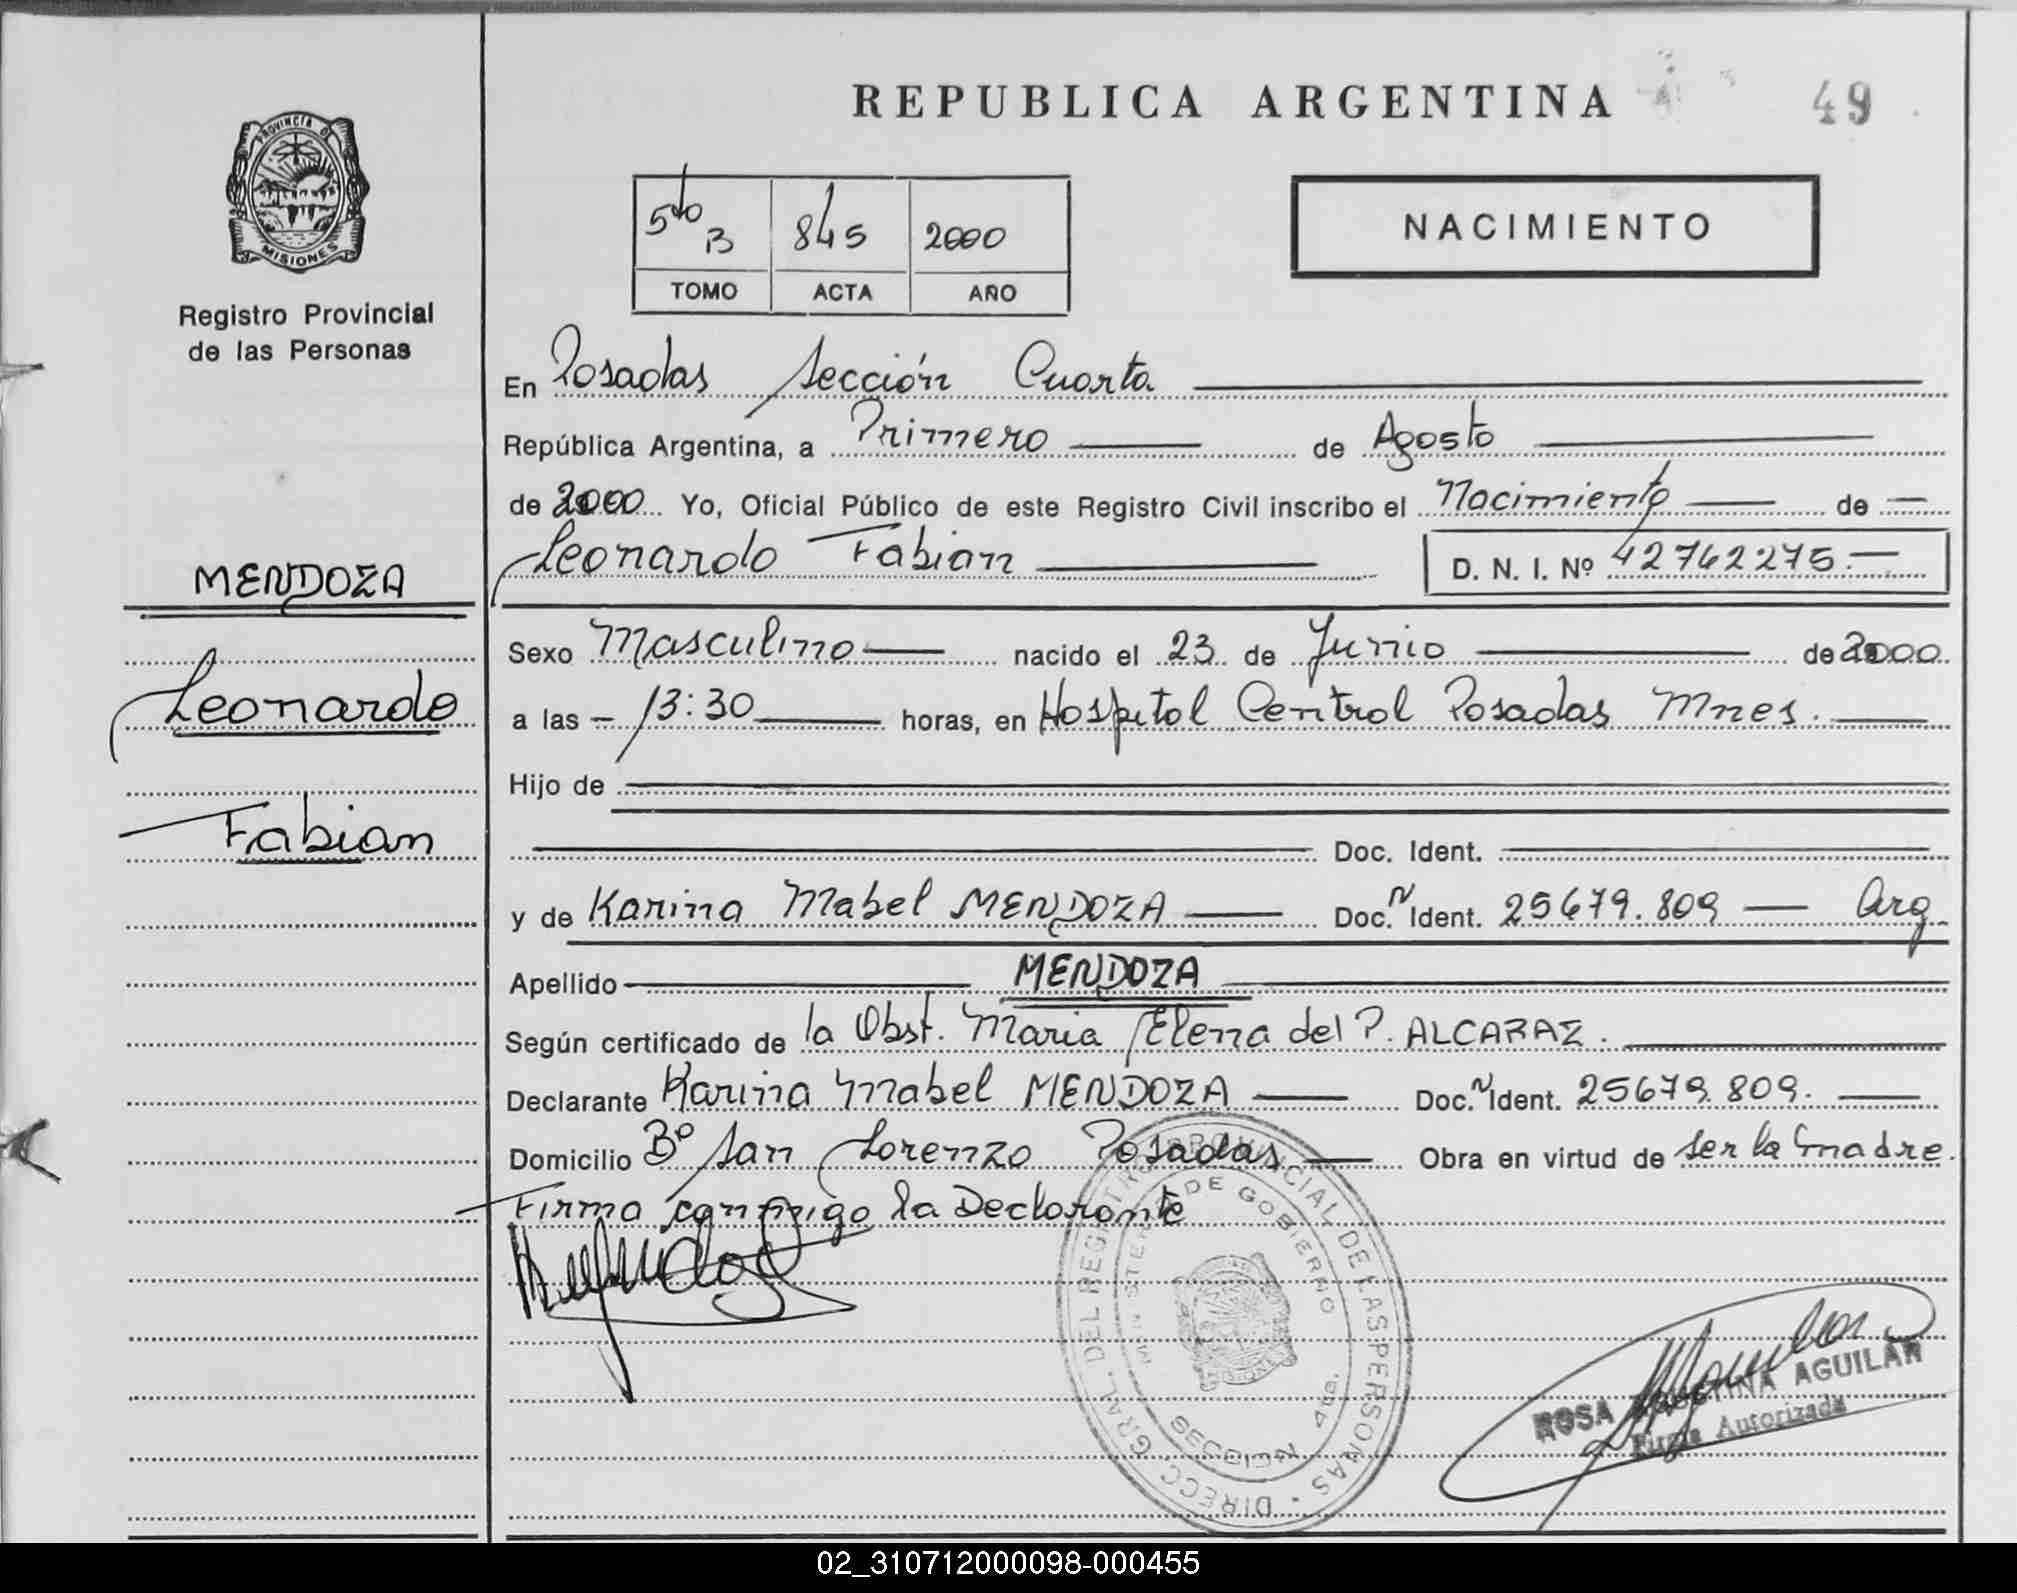 REPUBLICA ARGENTINA
49
PROVINCIA DE
MISIONES
Registro Provincial
de las Personas
5to B 845 2000
TOMO ACTA AÑO
NACIMIENTO
En Posadas Sección Cuarta
República Argentina, a Primero de Agosto
de 2000 Yo, Oficial Público de este Registro Civil inscribo el Nacimiento de
Leonardo Fabian D. N. I. Nº 42762275.-
MENDOZA
Leonardo
Fabian
Sexo Masculino nacido el 23 de Junio de 2000
a las 13:30 horas, en Hospital Central Posadas Mnes.
Hijo de
Doc. Ident.
y de Karina Mabel MENDOZA Doc. N Ident. 25679.809 Arg
Apellido MENDOZA
Según certificado de la Obst. Maria Elena del P. ALCARAZ.
Declarante Karina Mabel MENDOZA Doc. N Ident. 25679.809.
Domicilio Bº San Lorenzo Posadas Obra en virtud de ser la madre.
Firma conmigo la Declarante
DIRECC. GRAL. DEL REGISTRO PROVINCIAL DE LAS PERSONAS
MINISTERIO DE GOBIERNO
SECCION 4ta.
ROSA AGUILAR
Firma Autorizada
02_310712000098-000455